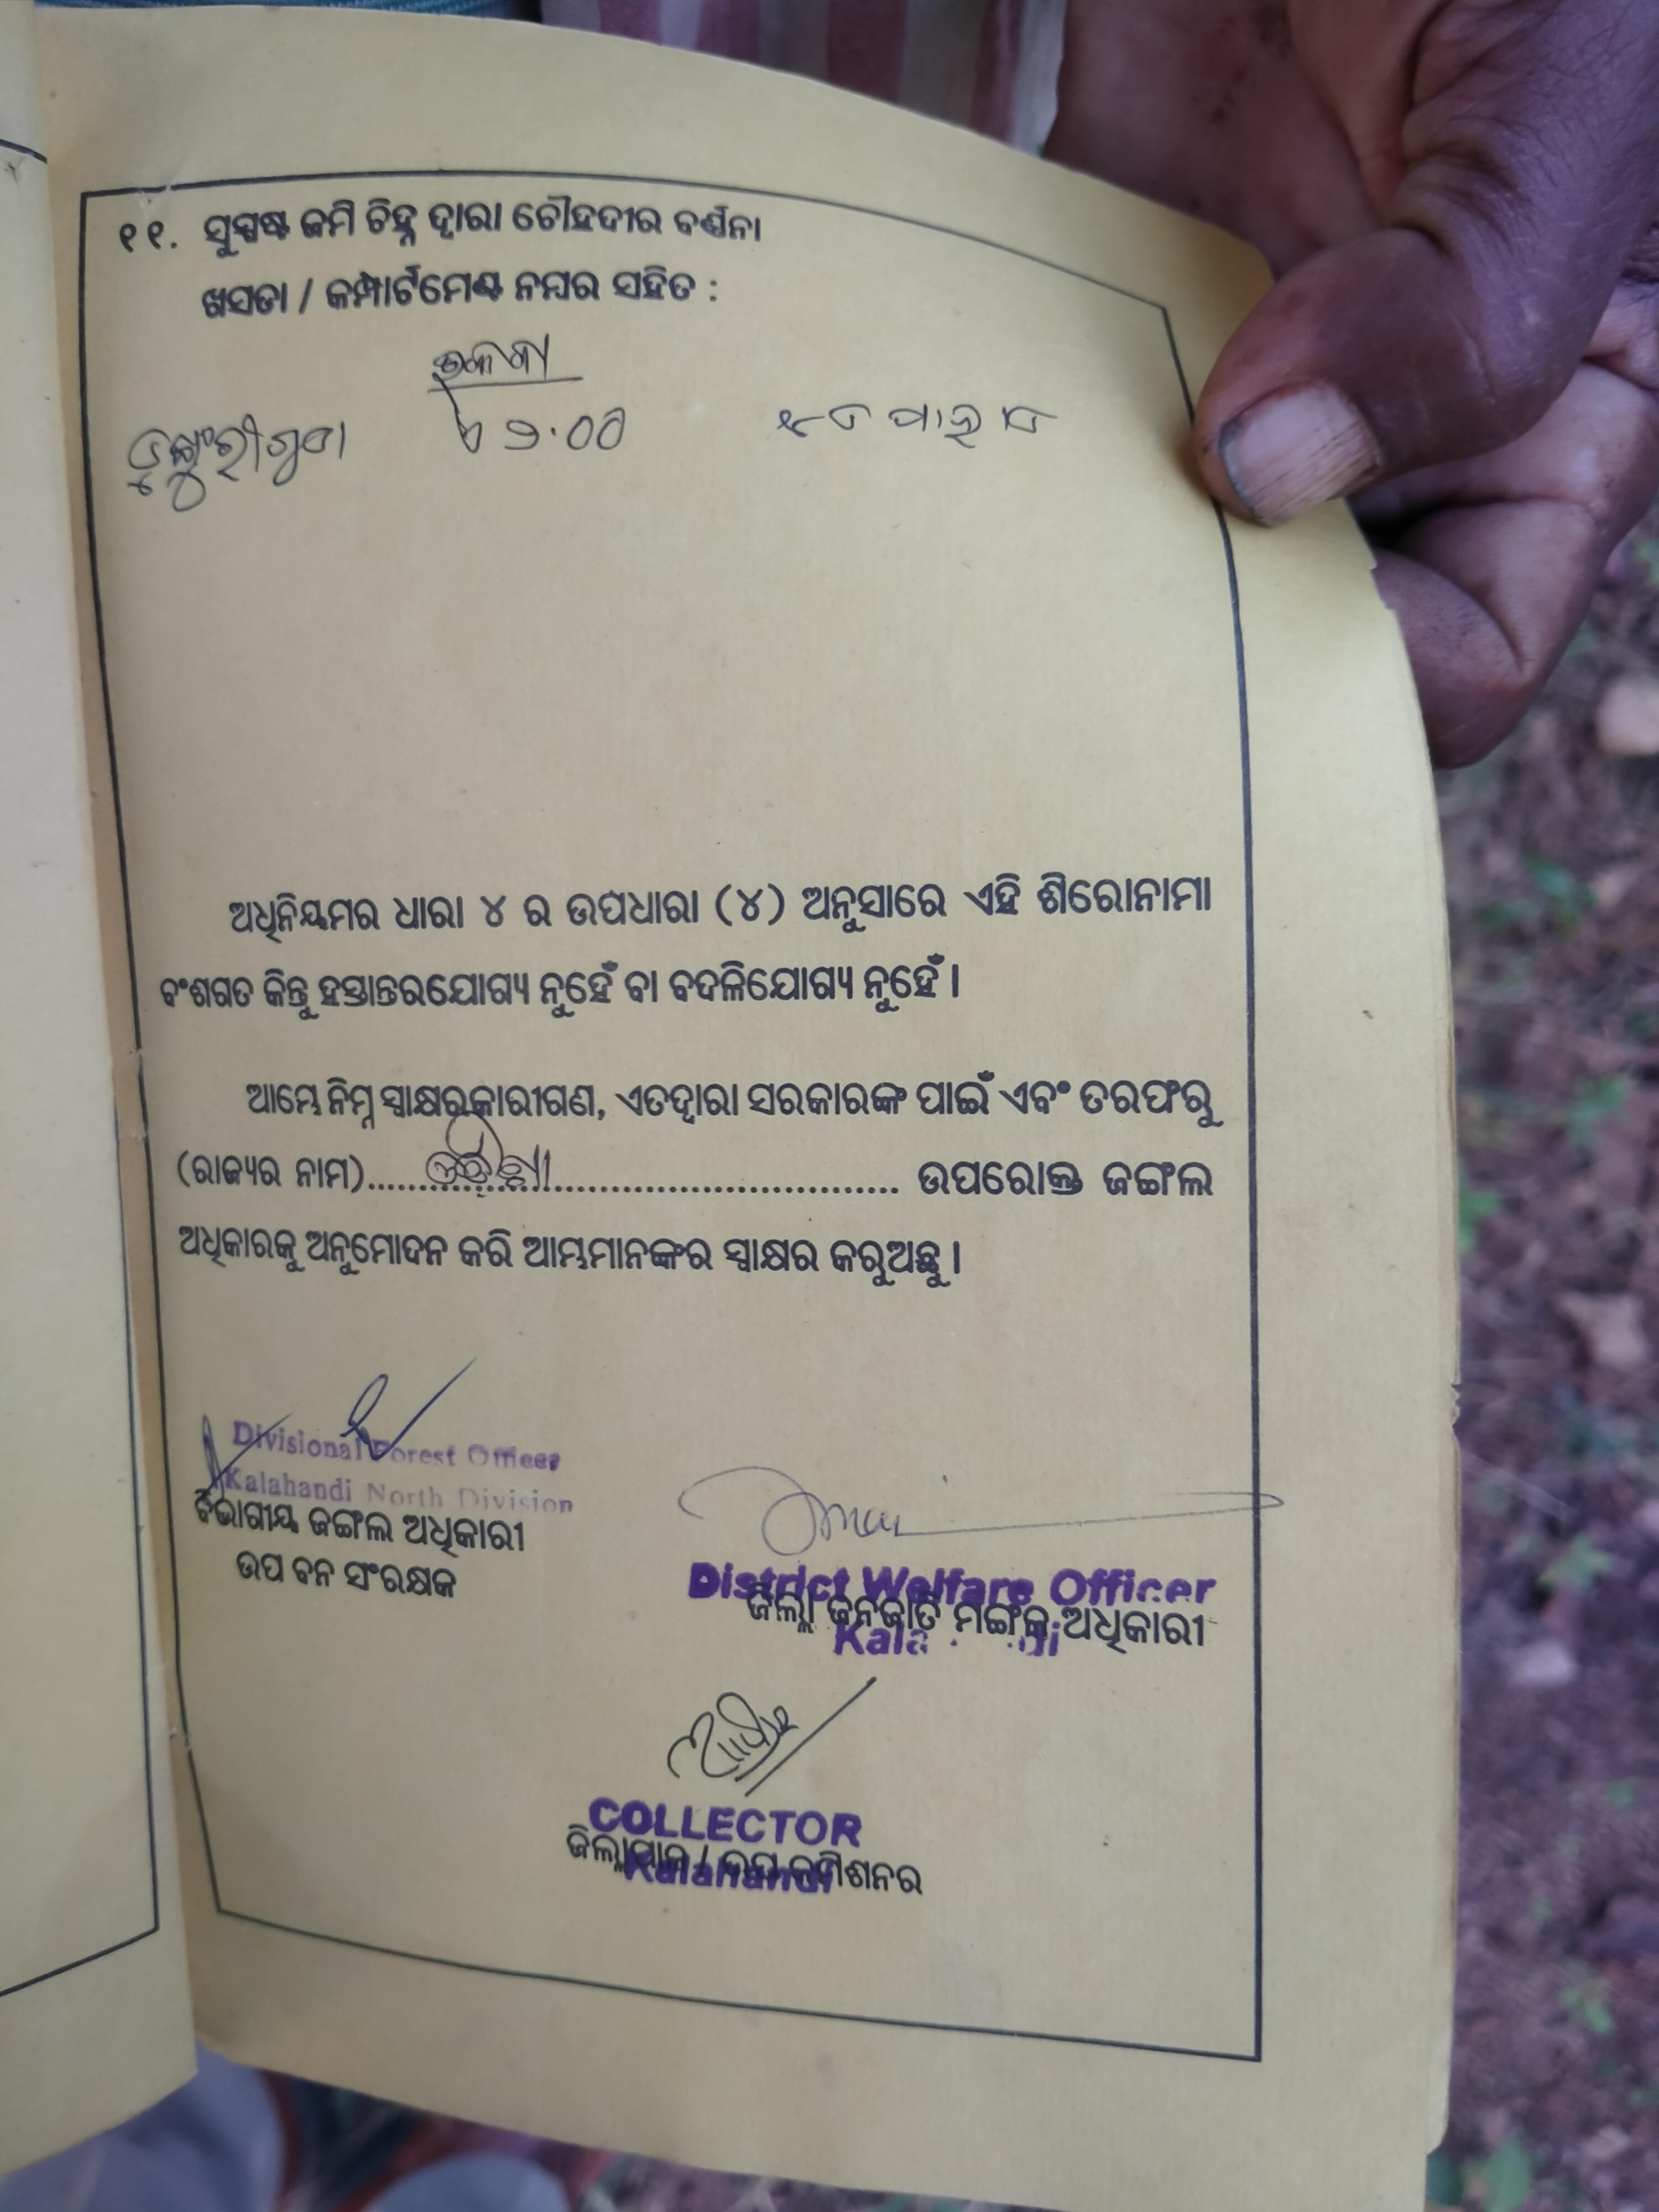 ୧୧. ସୁସ୍ପଷ୍ଟ ଜମି ଚିହ୍ନ ଦ୍ୱାରା ଚୌହଦୀର ବର୍ଣ୍ଣନା
ଖସଡା / କମ୍ପାର୍ଟମେଣ୍ଟ ନମ୍ବର ସହିତ :
ରକବା
ଏ ୨.୦୦
ଅଧିନିୟମର ଧାରା ୪ ର ଉପଧାରା (୪) ଅନୁସାରେ ଏହି ଶିରୋନାମା
ବଂଶଗତ କିନ୍ତୁ ହସ୍ତାନ୍ତରଯୋଗ୍ୟ ନୁହେଁ ବା ବଦଳିଯୋଗ୍ୟ ନୁହେଁ ।
ଆମ୍ଭେ ନିମ୍ନ ସ୍ୱାକ୍ଷରକାରୀଗଣ, ଏତଦ୍ୱାରା ସରକାରଙ୍କ ପାଇଁ ଏବଂ ତରଫରୁ
(ରାଜ୍ୟର ନାମ)..... ଓଡ଼ିଶା ..... ଉପରୋକ୍ତ ଜଙ୍ଗଲ
ଅଧିକାରକୁ ଅନୁମୋଦନ କରି ଆମ୍ଭମାନଙ୍କର ସ୍ୱାକ୍ଷର କରୁଅଛୁ ।
Divisional Forest Officer
Kalahandi North Division
ବିଭାଗୀୟ ଜଙ୍ଗଲ ଅଧିକାରୀ
ଉପ ବନ ସଂରକ୍ଷକ
District Welfare Officer
ଜିଲ୍ଲା ଜନଜାତି ମଙ୍ଗଳ ଅଧିକାରୀ
COLLECTOR
ଜିଲ୍ଲାପାଳ / ଉପ କମିଶନର
Kalahandi